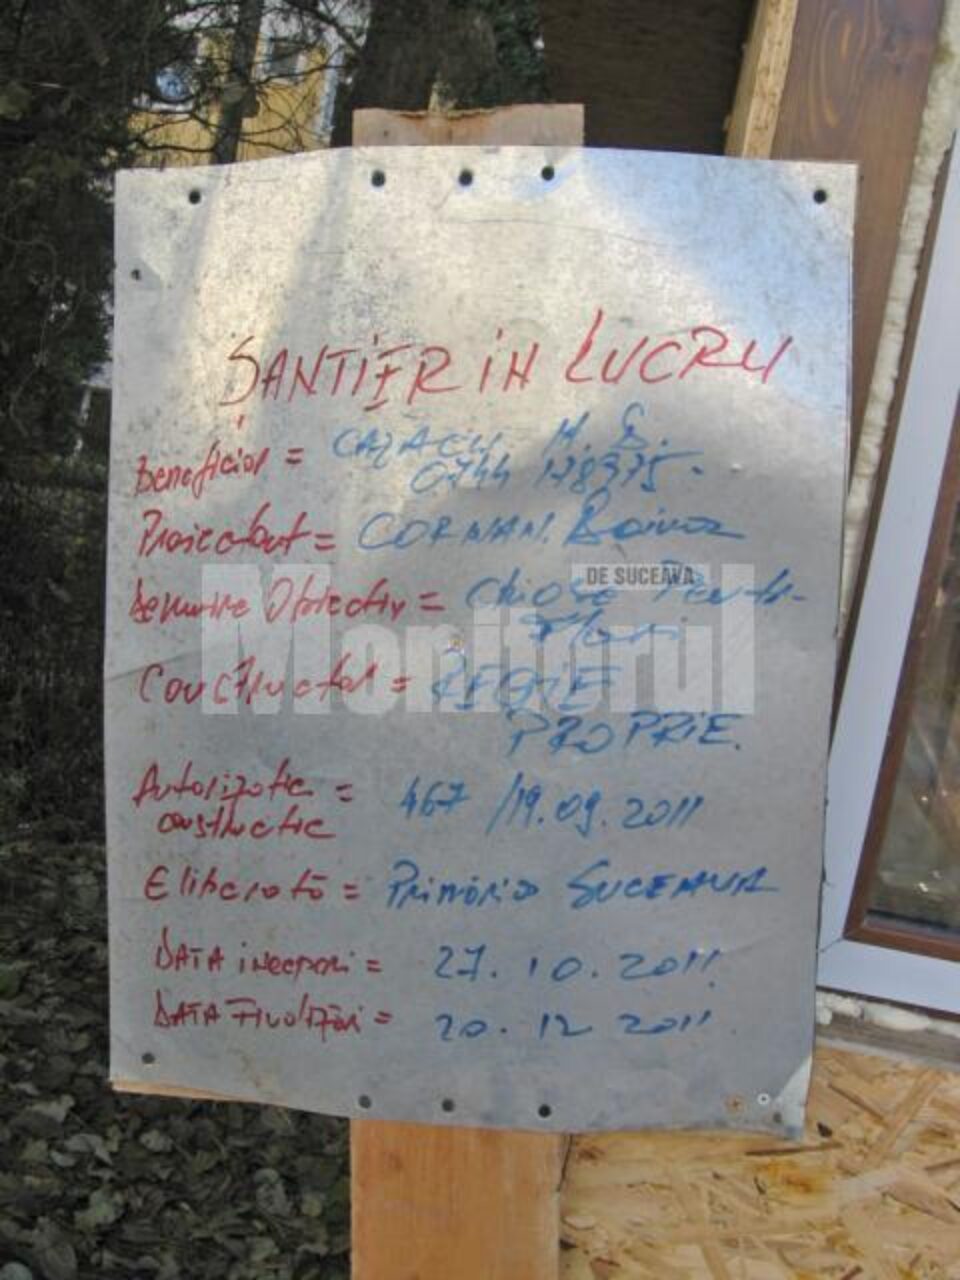 ȘANTIER IN LUCRU
Beneficiar = CAZACU M. G.
0744 178375.
Proiectant = CORMAN.
Denumire Obiectiv = Chioșc
Constructor = REGIE
PROPRIE.
Autorizatie = 467 /19.09.2011
constructie
Eliberată = Primăria SUCEAVA
DATA inceperi = 27.10.2011
DATA Finalizări = 20.12 2011
Monitorul
DE SUCEAVA